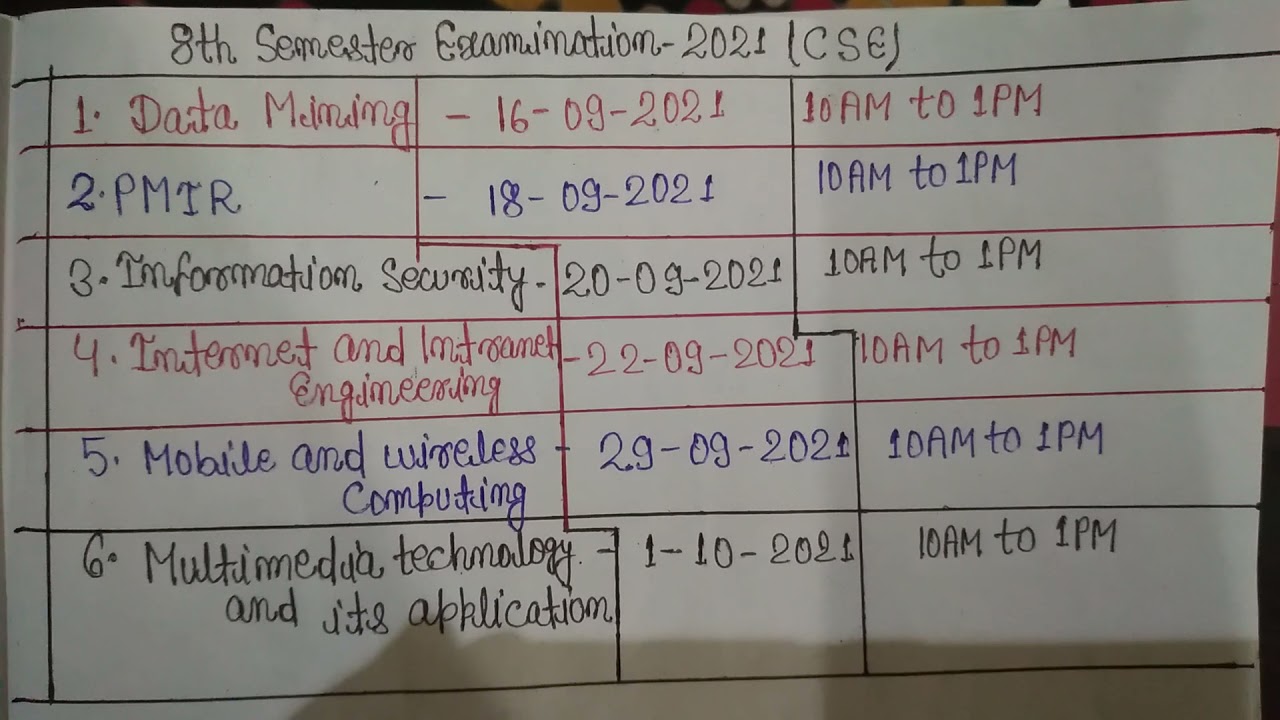 8th Semester Examination-2021 (CSE)
1. Data Mining - 16-09-2021 10AM to 1PM
2. PMIR - 18-09-2021 10AM to 1PM
3. Information Security - 20-09-2021 10AM to 1PM
4. Internet and Intranet - 22-09-2021 10AM to 1PM
Engineering
5. Mobile and wireless - 29-09-2021 10AM to 1PM
Computing
6. Multimedia technology - 1-10-2021 10AM to 1PM
and its application